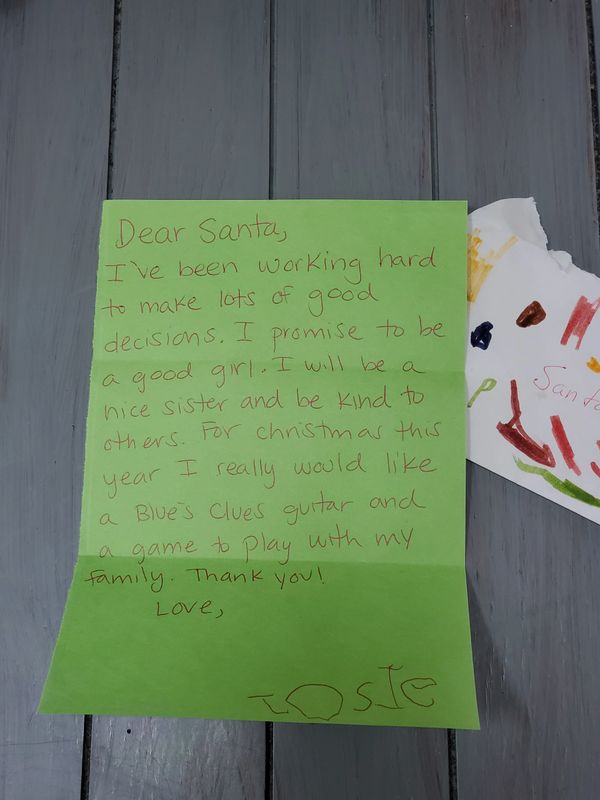 Dear Santa,
I've been working hard
to make lots of good
decisions. I promise to be
a good girl. I will be a
nice sister and be kind to
others. For christmas this
year I really would like
a Blue's Clues guitar and
a game to play with my
family. Thank you!
Love,
JOsIe
Santa